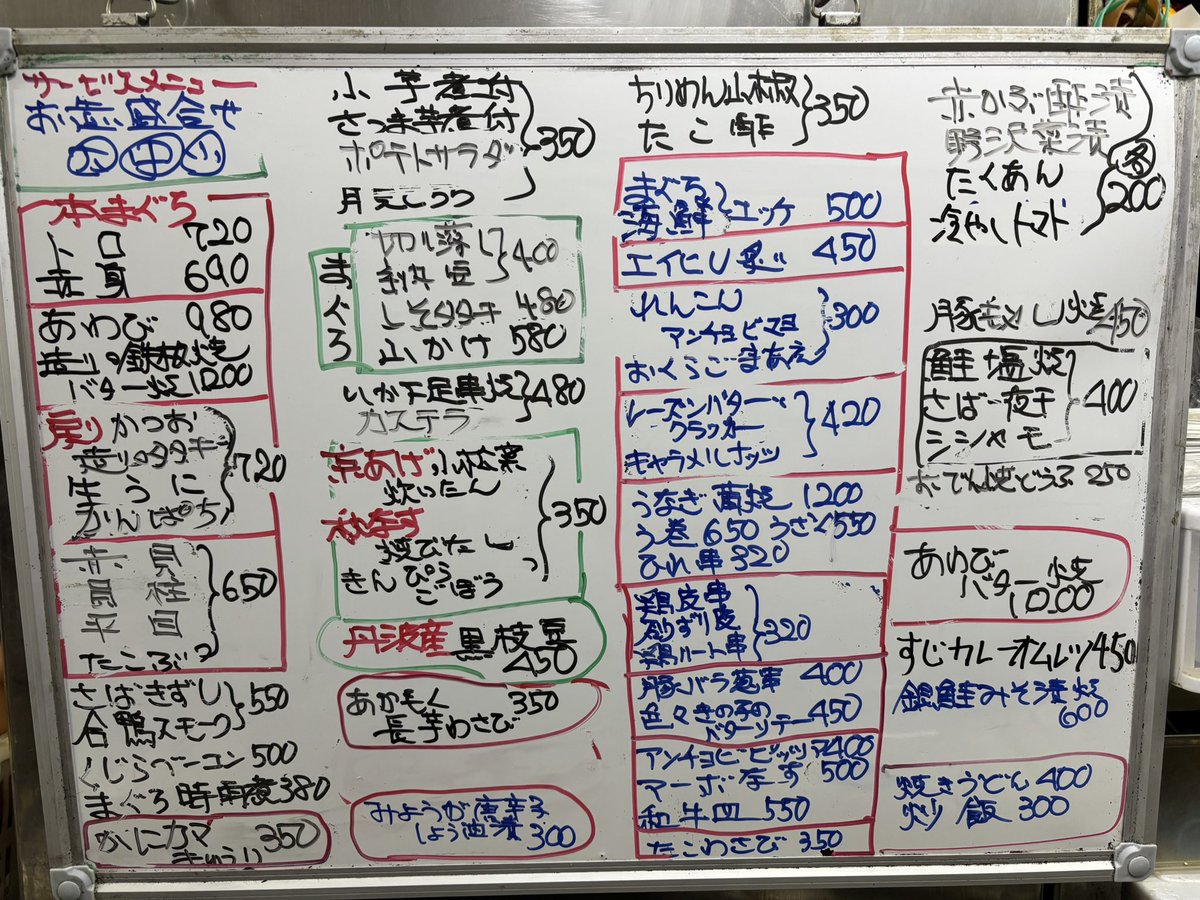 サービスメニュー
お造り盛合せ
大 中 小
本まぐろ
トロ 720
赤身 690
あわび 980
造り 鉄板焼
バター焼 1200
戻りかつお
造り・タタキ
生うに
かんぱち
720
赤貝
貝柱
平目
たこぶつ
650
さばきずし
合鴨スモーク
550
くじらベーコン 500
まぐろ時雨煮 380
かにカマ
きゅうり
350
小芋煮付
さつま芋煮付
ポテトサラダ
350
月見とろろ
まぐろ
納豆
400
しそタタキ 480
山かけ 580
いか下足串焼
カステラ
480
京あげ小松菜
炊いたん
秋なす
煮びたし
きんぴら
ごぼう
350
丹波産 黒枝豆
450
あかもく 350
長芋わさび
みょうが唐辛子
しょう油漬 300
ちりめん山椒
たこ酢
350
まぐろ
海鮮
ユッケ 500
エイヒレ炙 450
れんこん
アンチョビマヨ
おくらごまあえ
300
レーズンバター
クラッカー
キャラメルナッツ
420
うなぎ蒲焼 1200
う巻 650 うざく 550
ひれ串 320
鶏皮串
ずり皮
鶏ハート串
320
豚バラ葱串 400
色々きの子の
バターソテー 450
アンチョビピッツァ 400
マーボなす 500
和牛皿 550
たこわさび 350
赤かぶ酢漬
野沢菜漬
たくあん
冷やしトマト
各
200
豚キムチ焼 450
鮭塩焼
さば一夜干
シシャモ
400
おでん焼どうふ 250
あわび
バター焼
1000
すじカレーオムレツ 450
銀鮭みそ漬焼
600
焼きうどん 400
炒飯 300